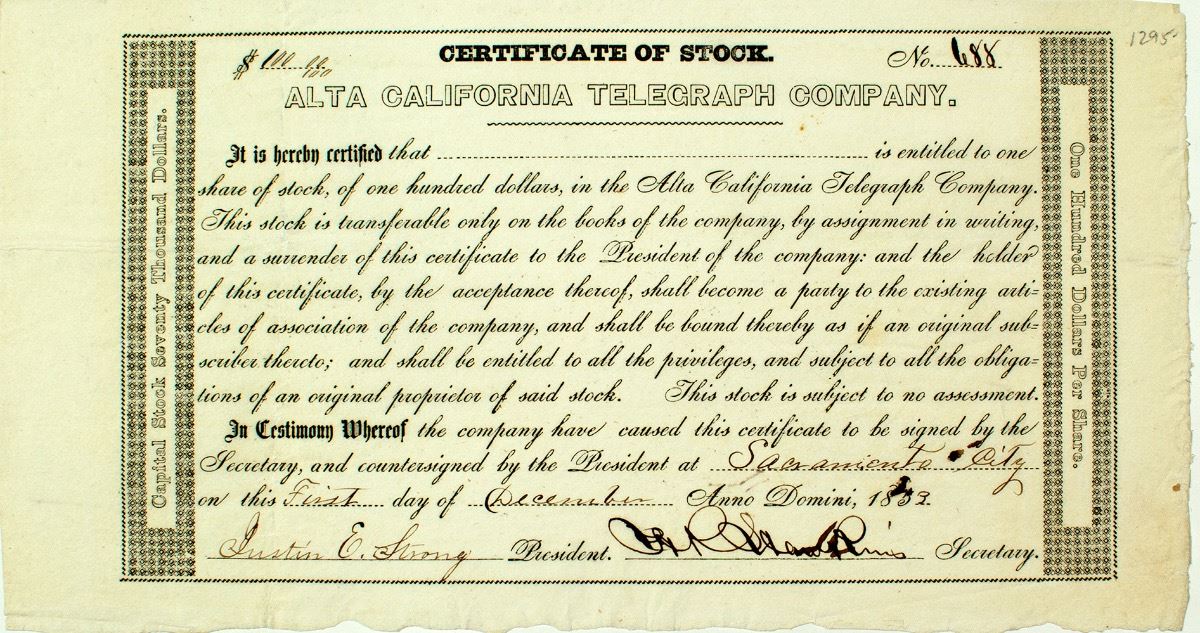 1295
CERTIFICATE OF STOCK.
$ 100 00/100 No. 688
ALTA CALIFORNIA TELEGRAPH COMPANY.
It is hereby certified that is entitled to one
share of stock, of one hundred dollars, in the Alta California Telegraph Company.
This stock is transferable only on the books of the company, by assignment in writing,
and a surrender of this certificate to the President of the company: and the holder
of this certificate, by the acceptance thereof, shall become a party to the existing arti=
cles of association of the company, and shall be bound thereby as if an original sub=
scriber thereto; and shall be entitled to all the privileges, and subject to all the obliga=
tions of an original proprietor of said stock. This stock is subject to no assessment.
In Testimony Whereof the company have caused this certificate to be signed by the
Secretary, and countersigned by the President at Sacramento City
on this First day of December Anno Domini, 1853
Justin E. Strong President. Secretary.
Capital Stock Seventy Thousand Dollars.
One Hundred Dollars Per Share.